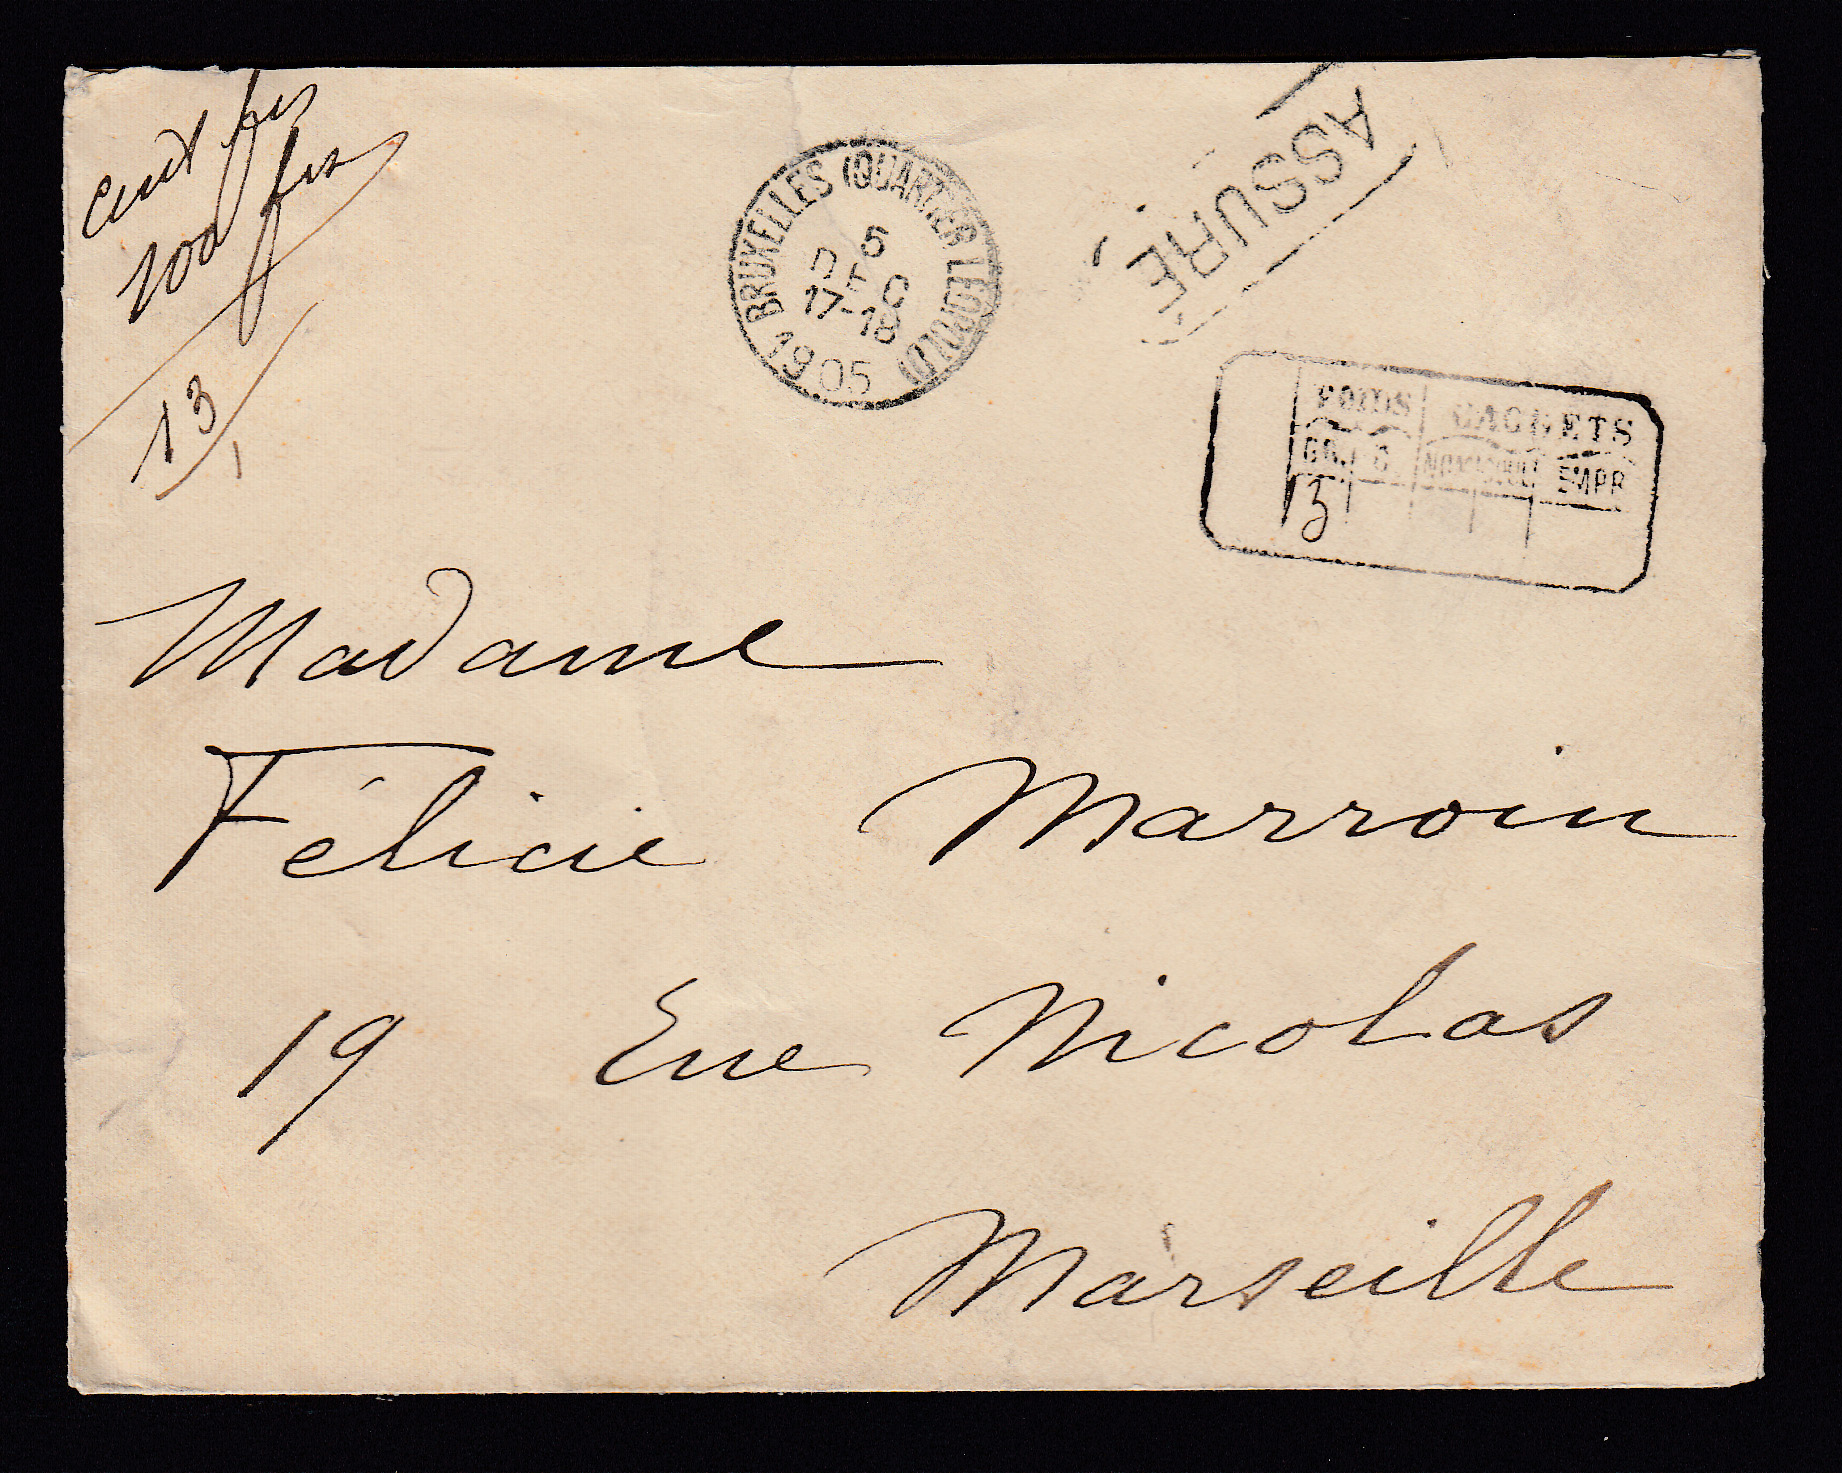 cent frs
100 frs
13
1
BRUXELLES (QUARTIER LEOPOLD)
5
DEC
17-18
1905
ASSURÉ
POIDS CACHETS
GR. C. EMPR
13
Madame
Félicie Marroin
19 Rue Nicolas
Marseille